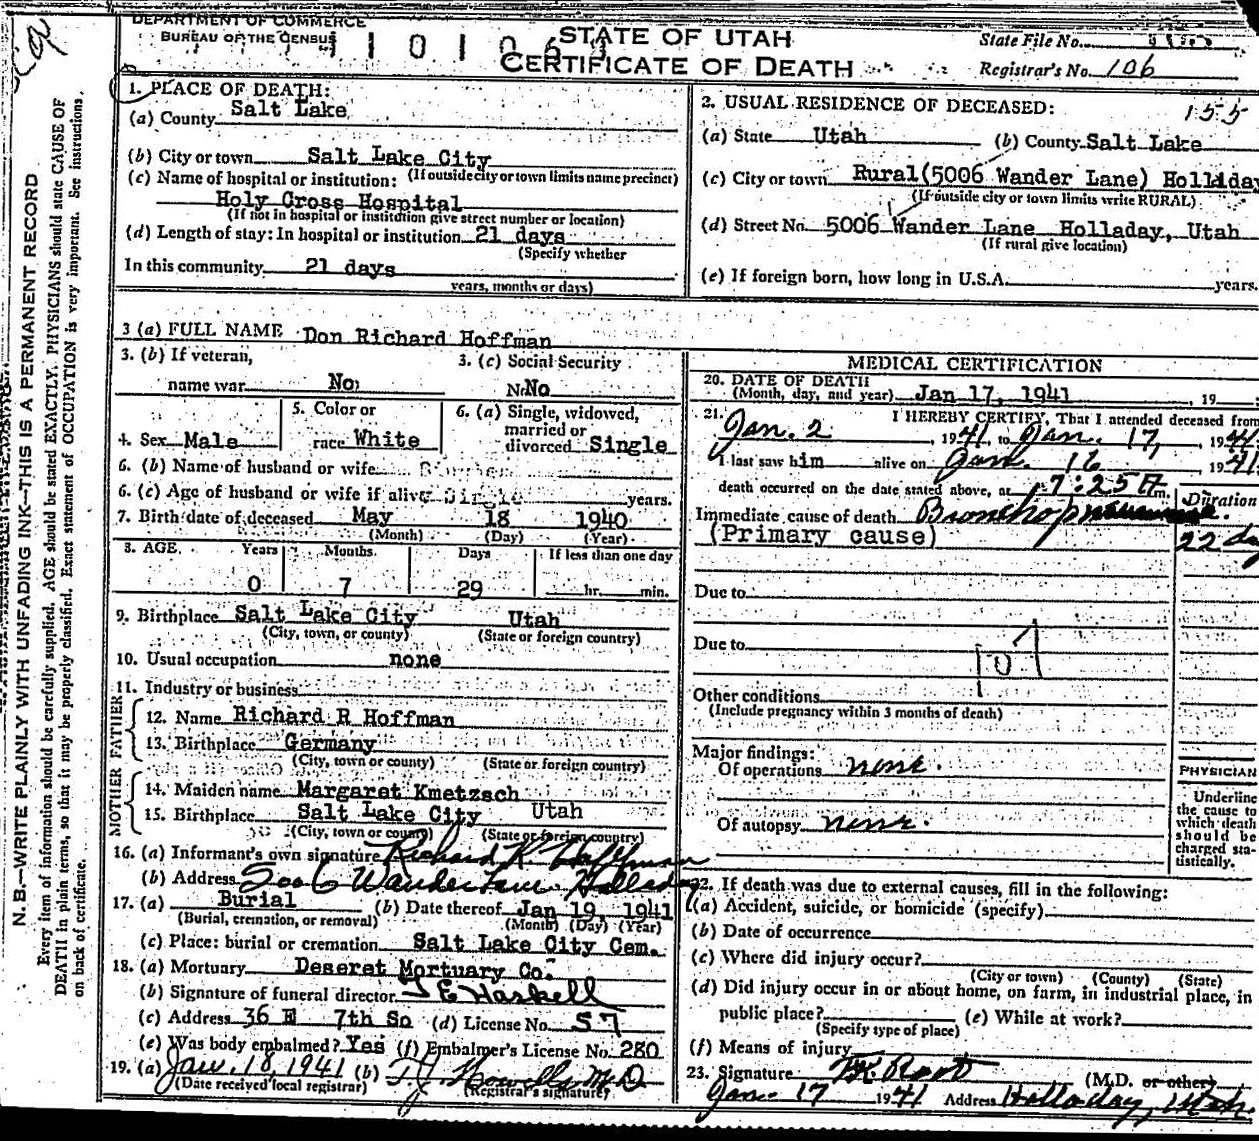 DEPARTMENT OF COMMERCE
BUREAU OF THE CENSUS
STATE OF UTAH
CERTIFICATE OF DEATH
State File No.
Registrar's No. 106
155
N. B.—WRITE PLAINLY WITH UNFADING INK—THIS IS A PERMANENT RECORD
Every item of information should be carefully supplied. AGE should be stated EXACTLY. PHYSICIANS should state CAUSE OF
DEATH in plain terms, so that it may be properly classified. Exact statement of OCCUPATION is very important. See instructions
on back of certificate.
1. PLACE OF DEATH:
(a) County Salt Lake
(b) City or town Salt Lake City
(If outside city or town limits name precinct)
(c) Name of hospital or institution:
Holy Cross Hospital
(If not in hospital or institution give street number or location)
(d) Length of stay: In hospital or institution 21 days
(Specify whether
In this community 21 days
years, months or days)
2. USUAL RESIDENCE OF DECEASED:
(a) State Utah (b) County Salt Lake
(c) City or town Rural (5006 Wander Lane) Holladay
(If outside city or town limits write RURAL)
(d) Street No. 5006 Wander Lane Holladay, Utah
(If rural give location)
(e) If foreign born, how long in U.S.A. years.
3 (a) FULL NAME Don Richard Hoffman
3. (b) If veteran,
name war No
3. (c) Social Security
No
4. Sex Male
5. Color or
race White
6. (a) Single, widowed,
married or
divorced Single
6. (b) Name of husband or wife
6. (c) Age of husband or wife if alive Single years.
7. Birth date of deceased May 18 1940
(Month) (Day) (Year)
8. AGE Years Months Days If less than one day
0 7 29 hr. min.
9. Birthplace Salt Lake City Utah
(City, town, or county) (State or foreign country)
10. Usual occupation none
11. Industry or business
FATHER
12. Name Richard R Hoffman
13. Birthplace Germany
(City, town or county) (State or foreign country)
MOTHER
14. Maiden name Margaret Kmetzsch
15. Birthplace Salt Lake City Utah
(City, town or county) (State or foreign country)
16. (a) Informant's own signature Richard R. Hoffman
(b) Address 5006 Wander Lane Holladay
17. (a) Burial (b) Date thereof Jan 19, 1941
(Burial, cremation, or removal) (Month) (Day) (Year)
(c) Place: burial or cremation Salt Lake City Cem.
18. (a) Mortuary Deseret Mortuary Co.
(b) Signature of funeral director T E Haskell
(c) Address 36 E 7th So (d) License No. 57
(e) Was body embalmed? Yes (f) Embalmer's License No. 280
19. (a) Jan. 18, 1941 (b) M.D
(Date received local registrar) (Registrar's signature)
MEDICAL CERTIFICATION
20. DATE OF DEATH
(Month, day, and year) Jan 17, 1941, 19
21. I HEREBY CERTIFY, That I attended deceased from
Jan. 2, 1941, to Jan. 17, 1941
I last saw him alive on Jan. 16 1941
death occurred on the date stated above, at 7:25 A m.
Duration
Immediate cause of death Bronchopneumonia.
(Primary cause) 22 day
Due to
Due to
107
Other conditions
(Include pregnancy within 3 months of death)
Major findings:
Of operations none.
Of autopsy none.
PHYSICIAN
Underline
the cause to
which death
should be
charged sta-
tistically.
22. If death was due to external causes, fill in the following:
(a) Accident, suicide, or homicide (specify)
(b) Date of occurrence
(c) Where did injury occur?
(City or town) (County) (State)
(d) Did injury occur in or about home, on farm, in industrial place, in
public place? (e) While at work?
(Specify type of place)
(f) Means of injury
23. Signature Root (M.D. or other)
Jan. 17 1941 Address Holladay, Utah.